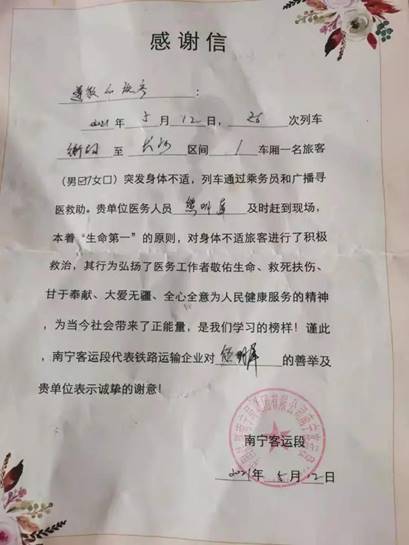 感谢信
尊敬的旅客：
2021年5月12日，Z6次列车
衡阳至长沙区间1车厢一名旅客
（男☑/女口）突发身体不适，列车通过乘务员和广播寻
医救助。贵单位医务人员及时赶到现场，
本着“生命第一”的原则，对身体不适旅客进行了积极
救治，其行为弘扬了医务工作者敬佑生命、救死扶伤、
甘于奉献、大爱无疆、全心全意为人民健康服务的精神
，为当今社会带来了正能量，是我们学习的榜样！谨此
，南宁客运段代表铁路运输企业对的善举及
贵单位表示诚挚的谢意！
南宁客运段
2021年5月12日